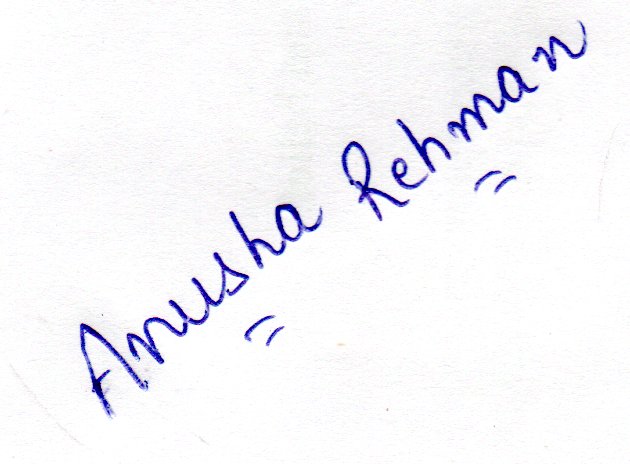 Anusha Rehman